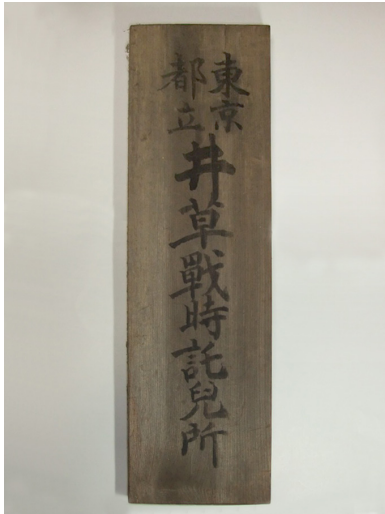 東京
都立
井草戰時託兒所